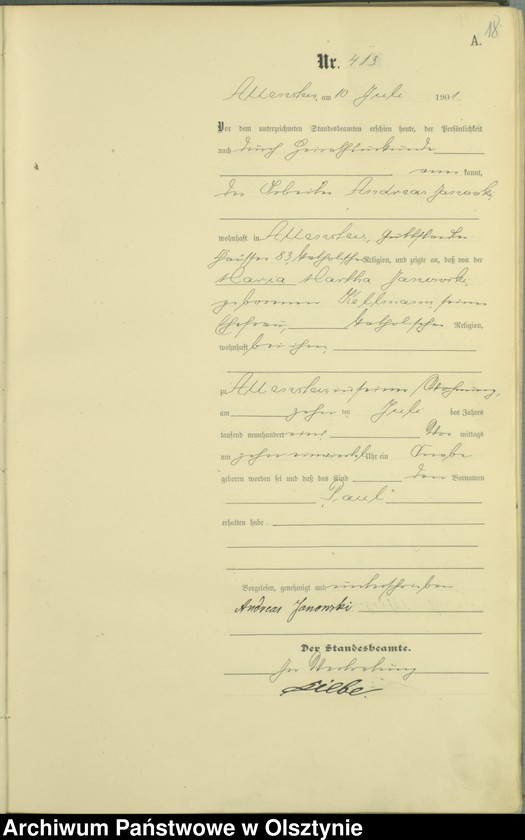 18
A.
Nr. 413
Allenstein, am 10 Juli 1901.
Vor dem unterzeichneten Standesbeamten erschien heute, der Persönlichkeit
nach durch Heirathsurkunde
aner kannt,
der Arbeiter Andreas Janowski
wohnhaft in Allenstein, Guttstädter
83, katholischer Religion, und zeigte an, daß von der
Maria Martha Janowski
geborenen Kellmann, seiner
Ehefrau, katholischer Religion,
wohnhaft bei ihm
zu Allenstein in seiner Wohnung,
am zehn ten Juli des Jahres
tausend neunhundert eins Vor mittags
um zehn einviertel Uhr ein Knabe
geboren worden sei und daß das Kind den Vornamen
Paul
erhalten habe.
Vorgelesen, genehmigt und unterschrieben
Andreas Janowski
Der Standesbeamte.
In Vertretung
Archiwum Państwowe w Olsztynie